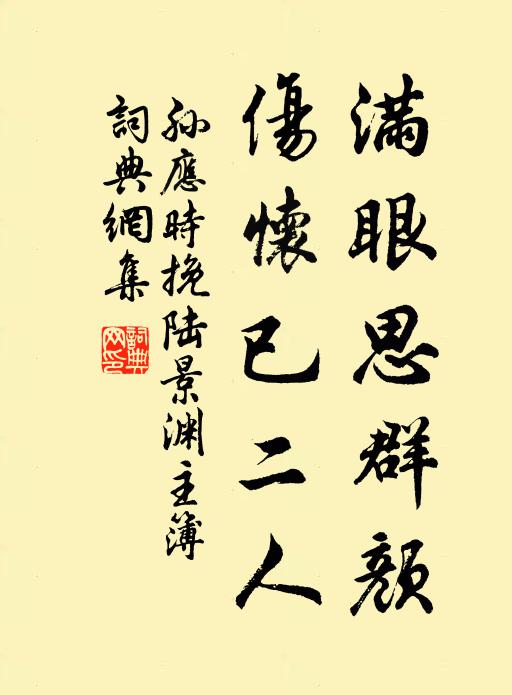 滿眼思群顏
傷懷已二人
孫應時挽陸景淵主簿
詞典網集
詞典网印